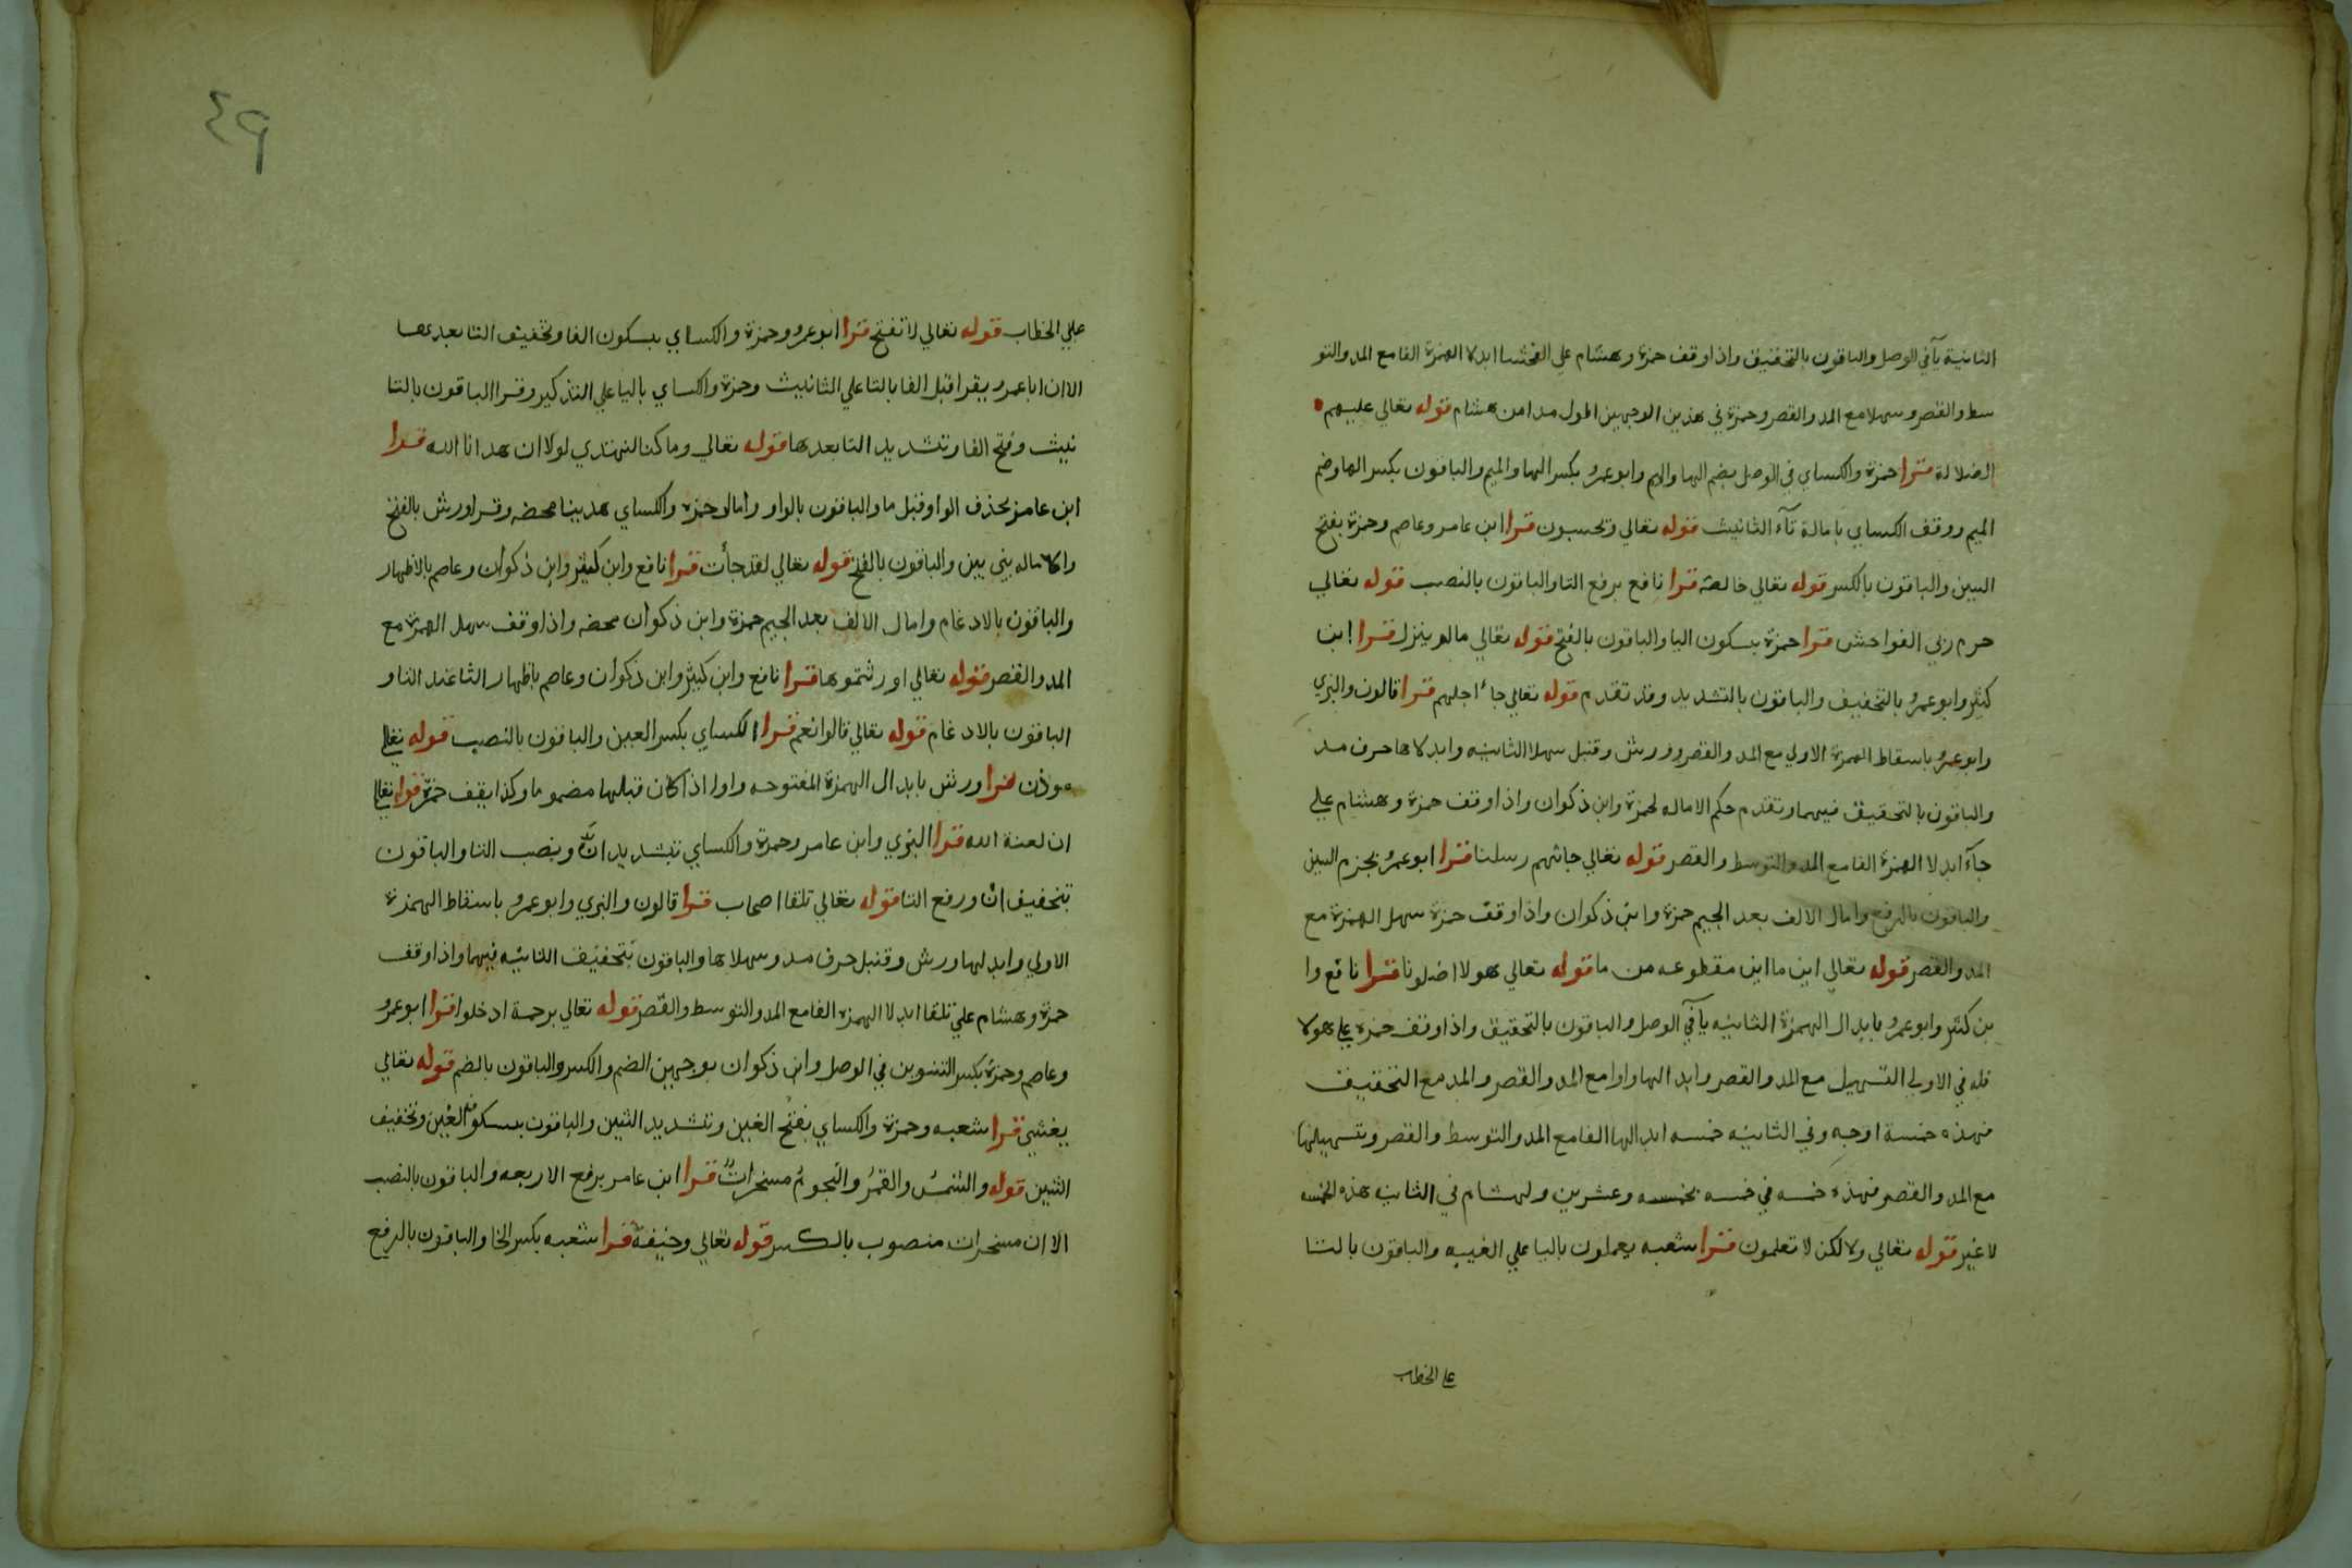 الثانية يآ في الوصل والباقون بالتحقيق واذا وقف حمزة وهشام علي الفحشا ابدلا الهمزة الفا مع المد والتو
سط والقصر وسهلا مع المد والقصر وحمزة في هذين الوجهين اطول مدا من هشام قوله تعالي عليهم
الضلالة قرا حمزة والكساي في الوصل بضم الها والميم وابو عمرو بكسر الها والميم والباقون بكسر الها وضم
الميم ووقف الكساي بامالة تآء التانيث قوله تعالي وتحسبون قرا ابن عامر وعاصم وحمزة بفتح
السين والباقون بالكسر قوله تعالي خالصة قرا نافع برفع التا والباقون بالنصب قوله تعالي
حرم ربي الفواحش قرا حمزة بسكون اليا والباقون بالفتح قوله تعالي مالم ينزل قرا ابن
كثير وابو عمرو بالتخفيف والباقون بالتشديد وقد تقدم قوله تعالي جاء اجلهم قرا قالون والبزي
وابو عمرو باسقاط الهمزة الاولي مع المد والقصر وورش وقنبل سهلا الثانيه وابدلاها حرف مد
والباقون بالتحقيق فيهما وتقدم حكم الاماله لحمزة وابن ذكوان واذا وقف حمزة وهشام علي
جآء ابدلا الهمزة الفا مع المد والتوسط والقصر قوله تعالي جاتهم رسلنا قرا ابو عمرو بجزم السين
والباقون بالرفع وامال الالف بعد الجيم حمزة وابن ذكوان واذا وقف حمزة سهل الهمزة مع
المد والقصر قوله تعالي اين ما اين مقطوعه من ما قوله تعالي هولا اضلونا قرا نافع وا
بن كثير وابو عمرو بابدال الهمزة الثانيه يآ في الوصل والباقون بالتحقيق واذا وقف حمزة علي هولا
فله في الاولي التسهيل مع المد والقصر وابدالها واوا مع المد والقصر والمد مع التحقيق
فهذه خمسة اوجه وفي الثانيه خمسه ابدالها الفا مع المد والتوسط والقصر وتسهيلها
مع المد والقصر فهذه خمسه في خمسه بخمسه وعشرين ولهشام في الثانيه هذه الخمسه
لا غير قوله تعالي ولاكن لا تعلمون قرا شعبه يعملون باليا علي الغيبه والباقون بالتا
علي الخطاب
٤٩
علي الخطاب قوله تعالي لا تفتح قرا ابو عمرو وحمزة والكساي بسكون الفا وتخفيف التا بعدها
الا ان ابا عمرو يقرا قبل الفا بالتا علي التانيث وحمزة والكساي باليا علي التذكير وقرا الباقون بالتا
نيث وفتح الفا وتشديد التا بعدها قوله تعالي وما كنا لنهتدي لولا ان هدانا الله قرا
ابن عامر بحذف الواو قبل ما والباقون بالواو وامال حمزه والكساي هدينا محضه وقرا ورش بالفتح
والاماله بين بين والباقون بالفتح قوله تعالي لقد جأت قرا نافع وابن كثير وابن ذكوان وعاصم بالاظهار
والباقون بالادغام وامال الالف بعد الجيم حمزة وابن ذكوان محضه واذا وقف سهل الهمزة مع
المد والقصر قوله تعالي اورثتموها قرا نافع وابن كثير وابن ذكوان وعاصم باظهار الثا عند التا و
الباقون بالادغام قوله تعالي قالوا نعم قرا الكساي بكسر العين والباقون بالنصب قوله تعالي
موذن قرا ورش بابدال الهمزة المفتوحه واوا اذا كان قبلها مضموما وكذا يقف حمزة قوله تعالي
ان لعنة الله قرا البزي وابن عامر وحمزة والكساي بتشديد انَّ ونصب التا والباقون
بتخفيف انْ ورفع التا قوله تعالي تلقا اصحاب قرا قالون والبزي وابو عمرو باسقاط الهمزة
الاولي وابدلها ورش وقنبل حرف مد وسهلاها والباقون بتحقيق الثانيه فيهما واذا وقف
حمزة وهشام علي تلقا ابدلا الهمزه الفا مع المد والتوسط والقصر قوله تعالي برحمة ادخلوا قرا ابو عمرو
وعاصم وحمزة بكسر التنوين في الوصل وابن ذكوان بوجهين الضم والكسر والباقون بالضم قوله تعالي
يغشي قرا شعبه وحمزة والكساي بفتح الغين وتشديد الشين والباقون بسكون الغين وتخفيف
الشين قوله والشمسُ والقمرُ والنجومُ مسخراتٌ قرا ابن عامر برفع الاربعه والباقون بالنصب
الا ان مسخرات منصوب بالكسر قوله تعالي وخيفة قرا شعبه بكسر الخا والباقون بالرفع